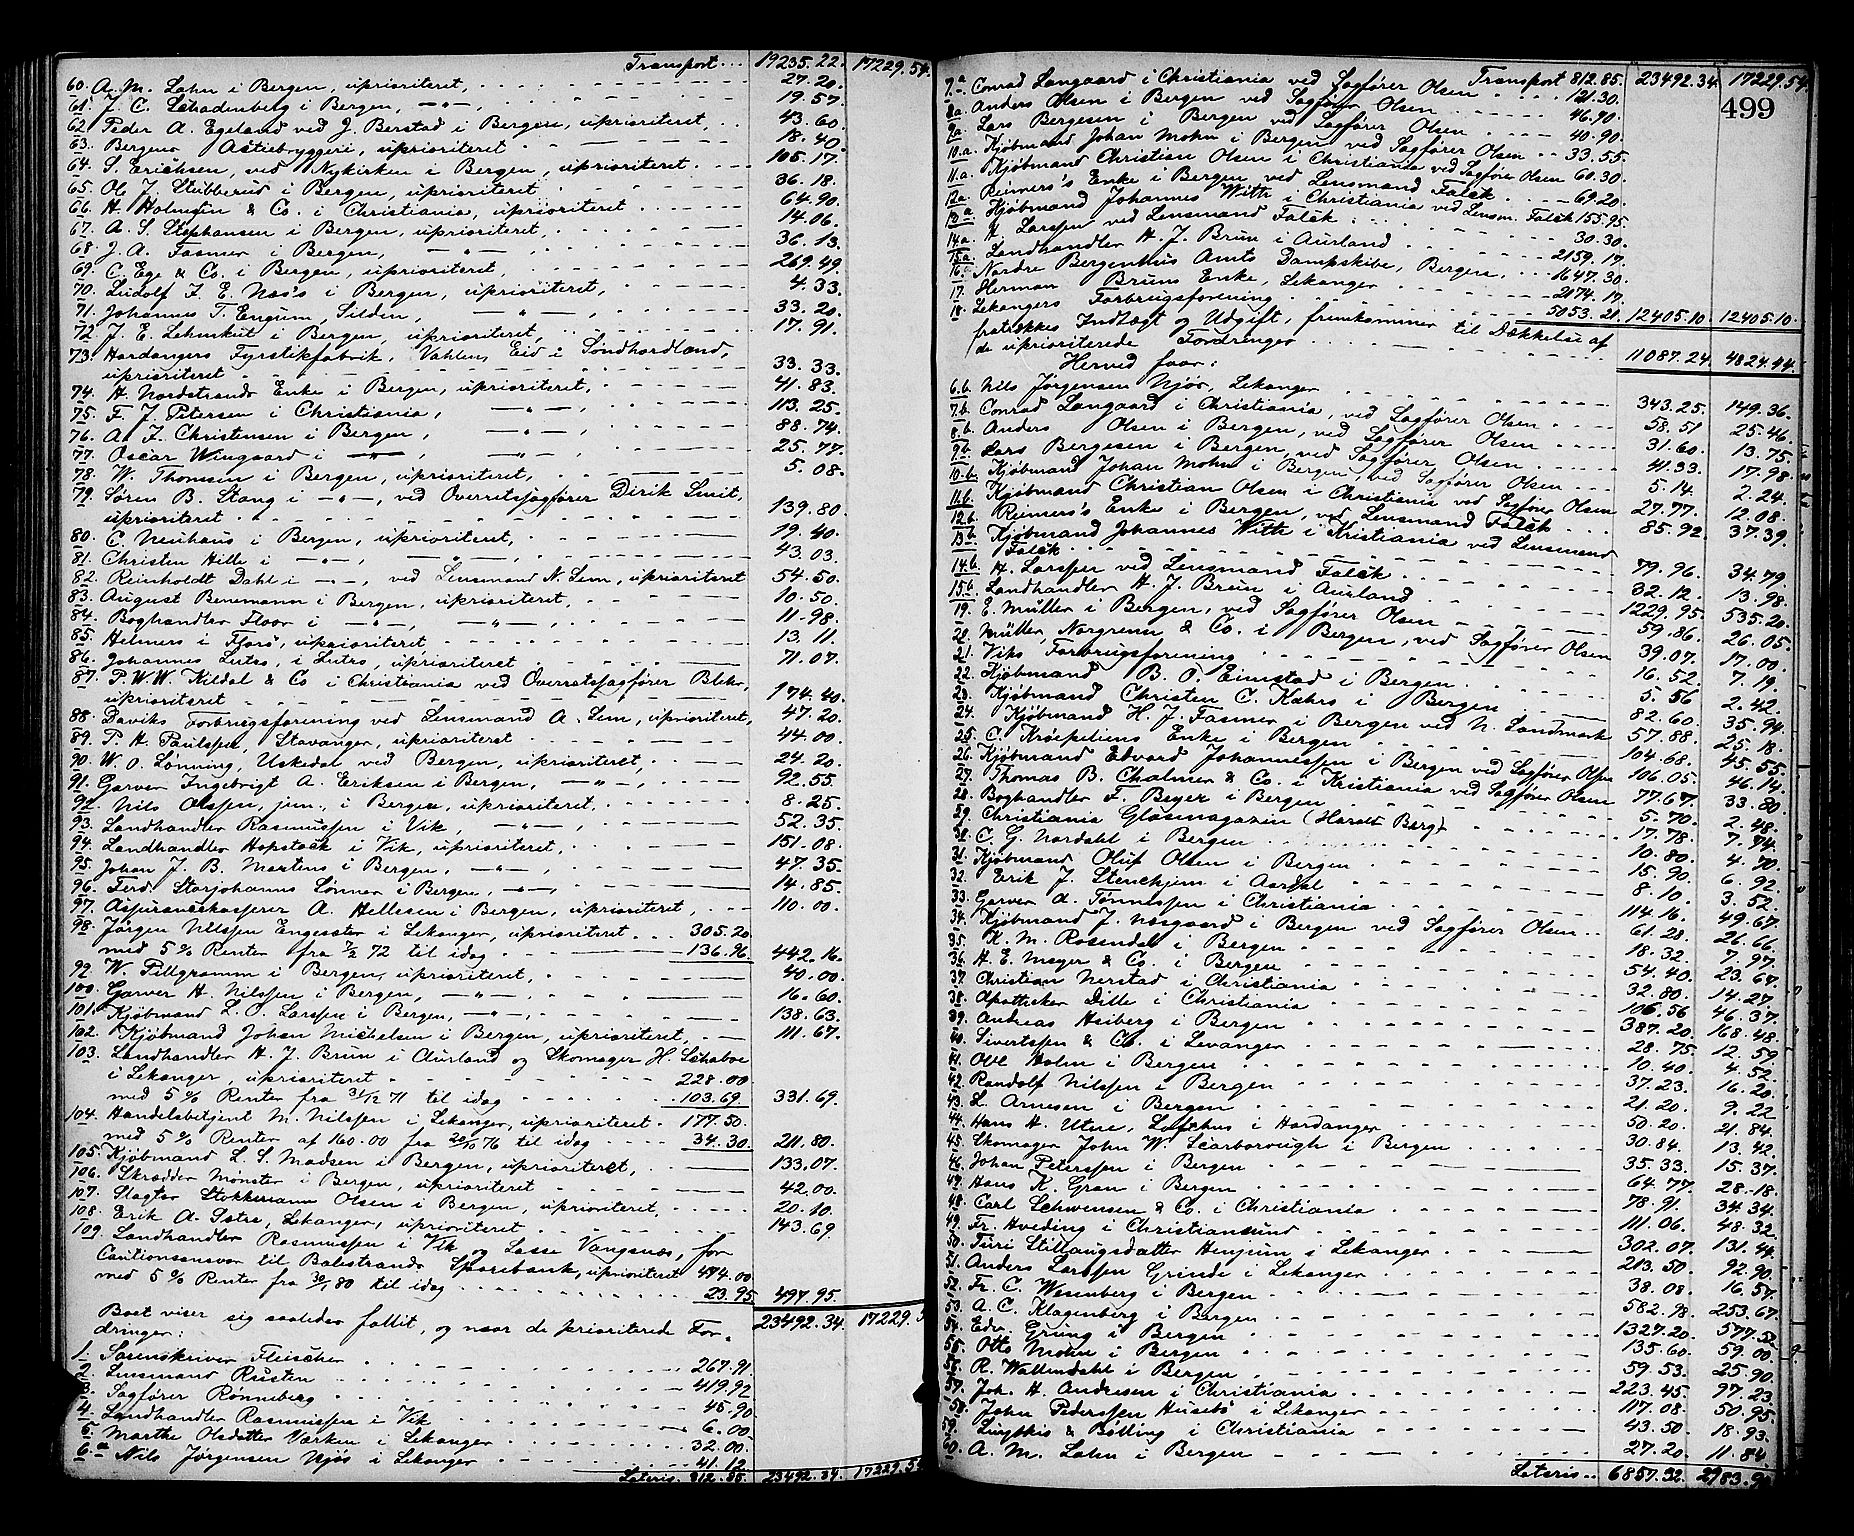 Transport ... 19235.22. 17229.54.
60. A. M. Lahn i Bergen, uprioriteret, 27.20.
61. J. C. Schadenberg i Bergen, —〃—, 19.57.
62. Peder A. Egeland ved J. Berstad i Bergen, uprioriteret, 43.60.
63. Bergens Actiebryggeri, uprioriteret 18.40.
64. S. Erichsen, ved Nykirken i Bergen, uprioriteret 105.17.
65. Ole J. Stubberud i Bergen, uprioriteret 36.18.
66. H. Holmsen & Co. i Christiania, uprioriteret 64.90.
67. A. S. Stephansen i Bergen, uprioriteret, 14.06.
68. J. A. Fasmer i Bergen, —〃— 36.13.
69. C. Ege & Co. i Bergen, uprioriteret, 269.49.
70. Ludolf J. E. Næss i Bergen, uprioriteret, 4.33.
71. Johannes T. Engum, Silden, —〃—, 33.20.
72. J. E. Lehmkul i Bergen, uprioriteret, 17.91.
73. Hardangers Fyrstikfabrik, Vahlen, Eid i Søndhordland,
uprioriteret 33.33.
74. H. Nordstrands Enke i Bergen, uprioriteret, 41.83.
75. F. J. Petersen i Christiania, —〃—, 113.25.
76. A. F. Christensen i Bergen, —〃—, 88.74.
77. Oscar Wingaard i —〃—, —〃—, 25.77.
78. W. Thomsen i Bergen, uprioriteret, 5.08.
79. Søren B. Stang i —〃—, ved Overretssagfører Dirik Smit,
uprioriteret 139.80.
80. C. Neuhaus i Bergen, uprioriteret, 19.40.
81. Christen Hille i —〃—, —〃—, 43.03.
82. Reinholdt Dahl i —〃—, ved Lensmand N. Sem, uprioriteret 54.50.
83. August Benemann i Bergen, uprioriteret, 10.50.
84. Boghandler Floor i —〃—, —〃—, 11.98.
85. Helmers i Florø, uprioriteret, 13.11.
86. Johannes Lutro, i Lutro, uprioriteret 71.07.
87. P. W. W. Kildal & Co i Christiania ved Overretssagfører Blehr,
uprioriteret 174.40.
88. Daviks Forbrugsforening ved Lensmand A. Sem, uprioriteret, 47.20.
89. P. H. Paulssen, Stavanger, uprioriteret 44.00.
90. W. O. Lønning, Uskedal ved Bergen, uprioriteret, 24.20.
91. Garver Ingebrigt A. Eriksen i Bergen, —〃—, 92.55.
92. Nils Olssen, jun., i Bergen, uprioriteret, 8.25.
93. Landhandler Rasmussen i Vik, —〃—, 52.35.
94. Landhandler Hopstock i Vik, uprioriteret, 151.08.
95. Johan J. B. Martens i Bergen, —〃—, 47.35.
96. Ferd. Storjohanns Sønner i Bergen, —〃—, 14.85.
97. Assurancekasserer A. Hellesen i Bergen, uprioriteret, 110.00.
98. Jørgen Nilssen Engesæter i Lekanger, uprioriteret 305.20
med 5 % Renter fra 7/2 72 til idag 136.96 442.16.
99. W. Pillgramm i Bergen, uprioriteret, 40.00.
100. Garver H. Nilssen i Bergen, —〃—, 16.60.
101. Kjøbmand L. O. Larssen i Bergen, —〃—, 138.63.
102. Kjøbmand Johan Michelsen i Bergen, uprioriteret, 111.67.
103. Landhandler H. J. Brun i Aurland og Skomager H. Schaboe
i Lekanger, uprioriteret 228.00
med 5 % Renter fra 31/12 71 til idag 103.69. 331.69.
104. Handelsbetjent M. Nilssen i Lekanger, uprioriteret. 177.50.
med 5 % Renter af 160.00 fra 20/10 76 til idag 34.30 211.80.
105. Kjøbmand L. S. Madsen i Bergen, uprioriteret, 133.07.
106. Skrædder Mønster i Bergen, uprioriteret 42.00.
107. Slagter Stokkemann Olsen i Bergen, uprioriteret, 20.10.
108. Erik A. Sætre, Lekanger, uprioriteret 143.69.
109. Landhandler Rasmussen i Vik og Lasse Vangsnæs, for
Cautionsansvar til Balestrands Sparebank, uprioriteret 474.00
med 5 % Renter fra 30/1 80 til idag 23.95 497.95.
Boet viser sig saaledes fallit, og naar de prioriterede For- 23492.34. 17229.5
dringer:
1. Sorenskriver Fleischer 267.91
2. Lensmand Rusten 419.92
3. Sagfører Rønneberg 45.90
4. Landhandler Rasmussen i Vik 6.00
5. Marthe Olsdatter Værken i Lekanger 32.00.
6.a Nils Jørgensen Njøs i Lekanger 41.12
Lateris. 812.85. 23492.34. 17229.54
499
Transport 812.85. 23492.34. 17229.54.
7.a Conrad Langaard i Christiania ved Sagfører Olsen 121.30.
8a. Anders Olsen i Bergen ved Sagfører Olsen 46.90.
9a. Lars Bergesen i Bergen ved Sagfører Olsen 40.90.
10.a. Kjøbmand Johan Mohn i Bergen ved Sagfører Olsen 33.55.
11.a. Kjøbmand Christian Olsen i Christiania ved Sagfører Olsen 60.30.
12a. Reimers's Enke i Bergen ved Lensmand Falck 69.20.
13.a Kjøbmand Johannes With i Christiania ved Lensm. Falck 155.95.
14a. H. Larssen ved Lensmand Falck 30.30.
15a. Landhandler H. J. Brun i Aurland 2159.17.
16. Nordre Bergenhus Amts Dampskibe, Bergen, 1647.30.
17. Herman Bruns Enke, Lekanger 2174.17.
18. Lekangers Forbrugsforening 5053.21. 12405.10. 12405.10.
fratrækkes Indtægt og Udgift, fremkommer til Dækkelse af
de uprioriterede Fordringer 11087.24. 4824.44.
Herved faar:
6.b. Nils Jørgensen Njøs, Lekanger 343.25. 149.36.
7.b. Conrad Langaard i Christiania, ved Sagfører Olsen 58.51 25.46.
8.b. Anders Olsen i Bergen, ved Sagfører Olsen 31.60. 13.75.
9.b. Lars Bergesen i Bergen, ved Sagfører Olsen 41.33. 17.98.
10.b. Kjøbmand Johan Mohn i Bergen ved Sagfører Olsen 5.14. 2.24.
11.b. Kjøbmand Christian Olsen i Christiania ved Sagfører Olsen 27.77. 12.08.
12.b. Reimers's Enke i Bergen, ved Lensmand Falck 85.92 37.39.
13.b Kjøbmand Johannes With i Kristiania ved Lensmand
Falck 79.96. 34.79.
14.b. H. Larssen ved Lensmand Falck 32.12. 13.98.
15.b. Landhandler H. J. Brun i Aurland 1229.95. 535.20.
19. E. Müller i Bergen, ved Sagfører Olsen 59.86. 26.05.
20. Müller, Norgrenn & Co. i Bergen, ved Sagfører Olsen 39.07. 17.00.
21. Viks Forbrugsforening 16.52 7.19.
22. Kjøbmand B. O. Eimstad i Bergen 5.56 2.42.
23. Kjøbmand Christen C. Kahrs i Bergen 82.60. 35.94.
24. Kjøbmand H. J. Fasmer i Bergen ved N. Landmark 57.88. 25.18.
25. C. Krøpeliens Enke i Bergen 104.68. 45.55.
26. Kjøbmand Edvard Johannessen i Bergen ved Sagfører Olsen 106.05. 46.14.
27. Thomas B. Chalmer & Co. i Kristiania ved Sagfører Olsen 77.67. 33.80.
28. Boghandler F. Beyer i Bergen 5.70. 2.48.
29. Christiania Glasmagazin (Harald Berg) 17.78. 7.74.
30. C. G. Nordahl i Bergen 10.80. 4.70.
31. Kjøbmand Oluf Olsen i Bergen 15.90. 6.92.
32. Erik J. Stenehjem i Aardal 8.10. 3.52.
33. Garver A. Tønnessen i Christiania 114.16. 49.67.
34. Kjøbmand J. Næsgaard i Bergen ved Sagfører Olsen 61.28. 26.66.
35. K. M. Rosendal i Bergen 18.32. 7.97.
36. H. E. Meyer & Co. i Bergen 54.40. 23.67.
37. Christian Nerstad i Christiania 32.80. 14.27.
38. Apotheker Ditle i Christiania 106.56 46.37.
39. Andreas Heiberg i Bergen 387.20. 168.48.
40. Sivertsen & Co. i Levanger 28.75. 12.59
41. Ole Holm i Bergen 10.40. 4.52.
42. Randolf Nilssen i Bergen 37.23. 16.20.
43. L. Arnesen i Bergen 21.20. 9.22
44. Hans H. Utne, Lofthus i Hardanger 50.20. 21.84.
45. Skomager John W. Scarborough i Bergen 30.84. 13.42.
46. Johan Peterssen i Bergen 35.33. 15.37.
47. Hans K. Gran i Bergen 64.77. 28.18.
48. Carl Schwensen & Co. i Christiania 78.91. 34.34.
49. Fr. Hveding i Christianssund 111.06. 48.32.
50. Turi Stillaugsdatter Henjum i Lekanger 302.07. 131.44.
51. Anders Larssen Grinde i Lekanger 213.50. 92.90.
52. Fr. C. Wesenberg i Bergen 38.08. 16.57.
53. A. C. Klagenberg i Bergen 582.98. 253.67.
54. Edv. Grung i Bergen 1327.20. 577.52
55. Otto Mohn i Bergen 135.60. 59.00.
56. R. Wallendahl i Bergen 59.53. 25.90.
57. Joh. H. Andresen i Christiania 223.45 97.23
58. John Pederssen Husebø i Lekanger 117.08. 50.95.
59. & Bølling i Christiania 43.50. 18.93.
60. A. M. Lahn i Bergen 27.20. 11.84.
Lateris .. 6857.92. 2983.90